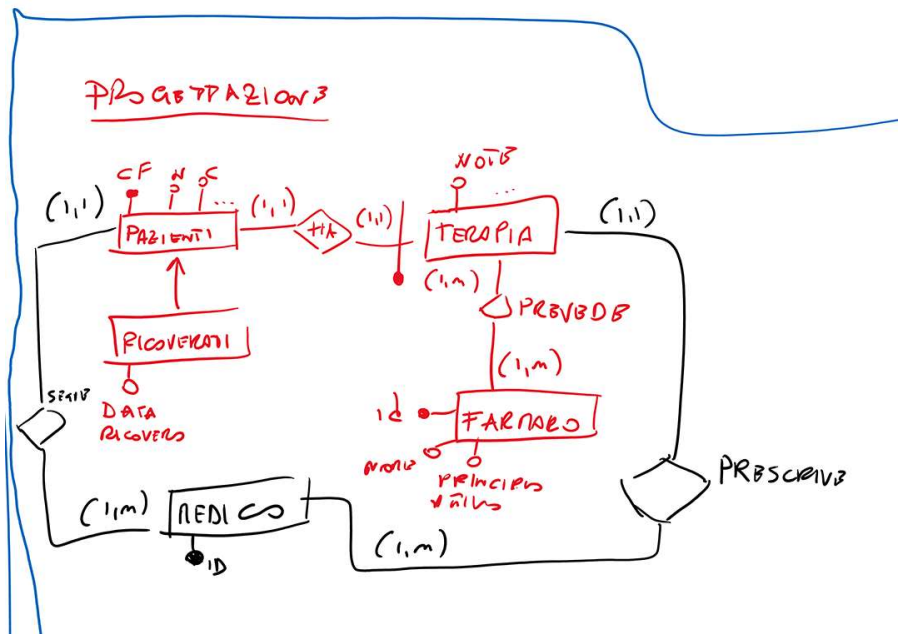 PROGETTAZIONE
CF N C ...
(1,1) PAZIENTI (1,1) HA (1,1) TERAPIA (1,1)
NOTE ...
(1,m) PREVEDE
RICOVERATI
(1,m)
DATA
RICOVERO
SEGUE
id FARMACO
NOME PRINCIPIO
ATTIVO
PRESCRIVE
(1,m) MEDICO
(1,m)
ID